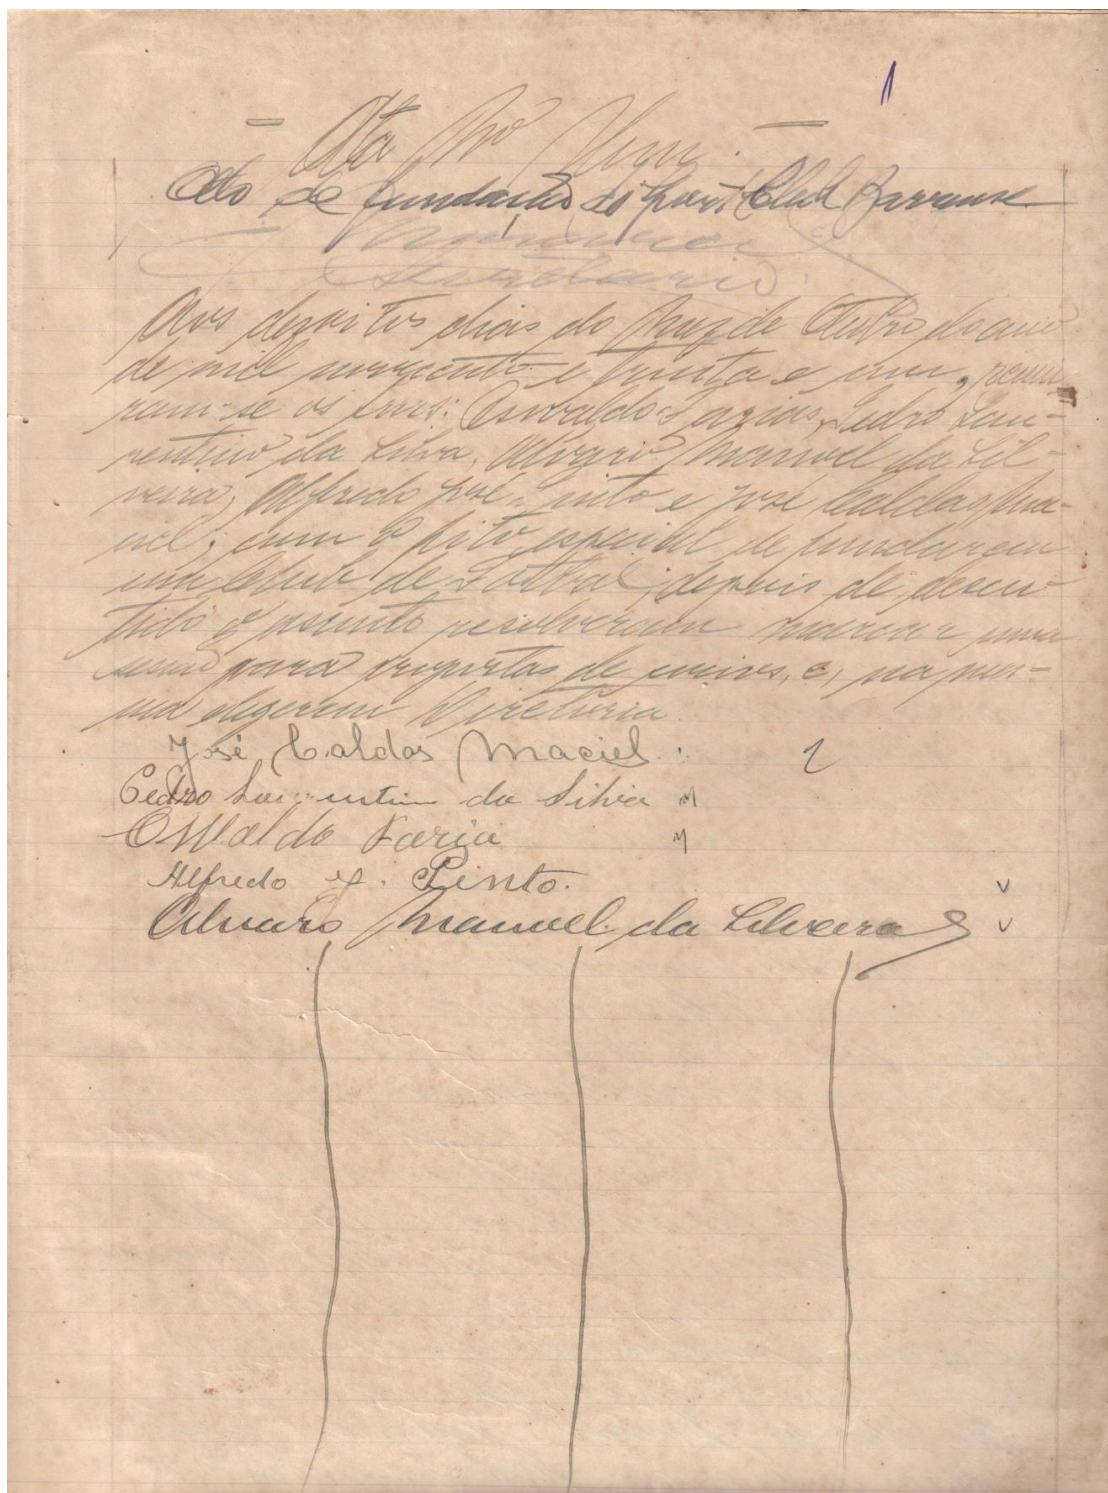 1
Ata Nº Um.
Ato de fundação do Sport Club Barrense
Secretario
Aos dezoitos dias do mez de Outubro do ano
de mil novecentos e trinta e um, reuni-
ram-se os snrs: Oswaldo Farias, Pedro Lau-
rentino da Silva, Alvaro Manoel da Sil-
veira, Alfredo José Pinto e José Caldas Ma-
ciel, com o fito especial de fundarem
um Club de Futbol, depois de discu-
tido o asunto resolveram marcar uma
para propostas de socios, e, na mes-
ma elegerem Diretoria
José Caldas Maciel
Pedro Laurentino da Silva
Oswaldo Faria
Alfredo J. Pinto.
Alvaro Manoel da Silveira